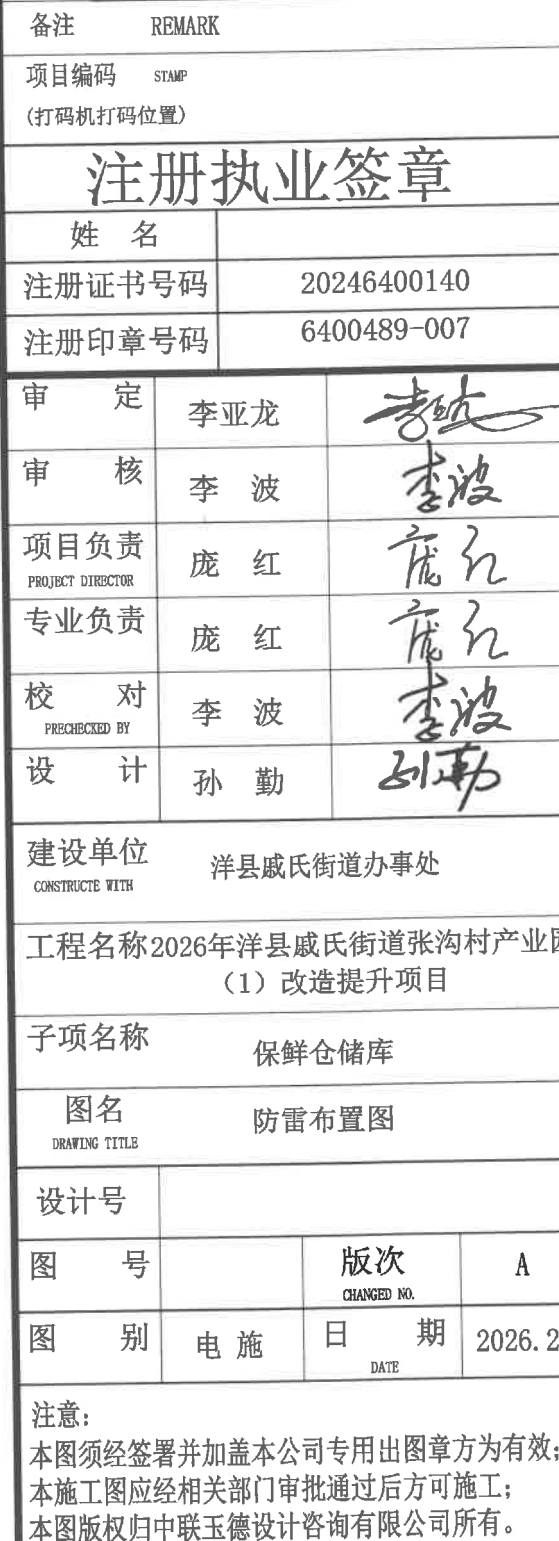 备注 REMARK
项目编码 STAMP
(打码机打码位置)
注册执业签章
姓 名
注册证书号码 20246400140
注册印章号码 6400489-007
审 定 李亚龙
审 核 李 波 李波
项目负责 庞 红 庞红
PROJECT DIRECTOR
专业负责 庞 红 庞红
校 对 李 波 李波
PRECHECKED BY
设 计 孙 勤 孙勤
建设单位 洋县戚氏街道办事处
CONSTRUCTE WITH
工程名称 2026年洋县戚氏街道张沟村产业园
（1）改造提升项目
子项名称 保鲜仓储库
图名 防雷布置图
DRAWING TITLE
设计号
图 号 版次 A
CHANGED NO.
图 别 电 施 日 期 2026.2
DATE
注意：
本图须经签署并加盖本公司专用出图章方为有效；
本施工图应经相关部门审批通过后方可施工；
本图版权归中联玉德设计咨询有限公司所有。